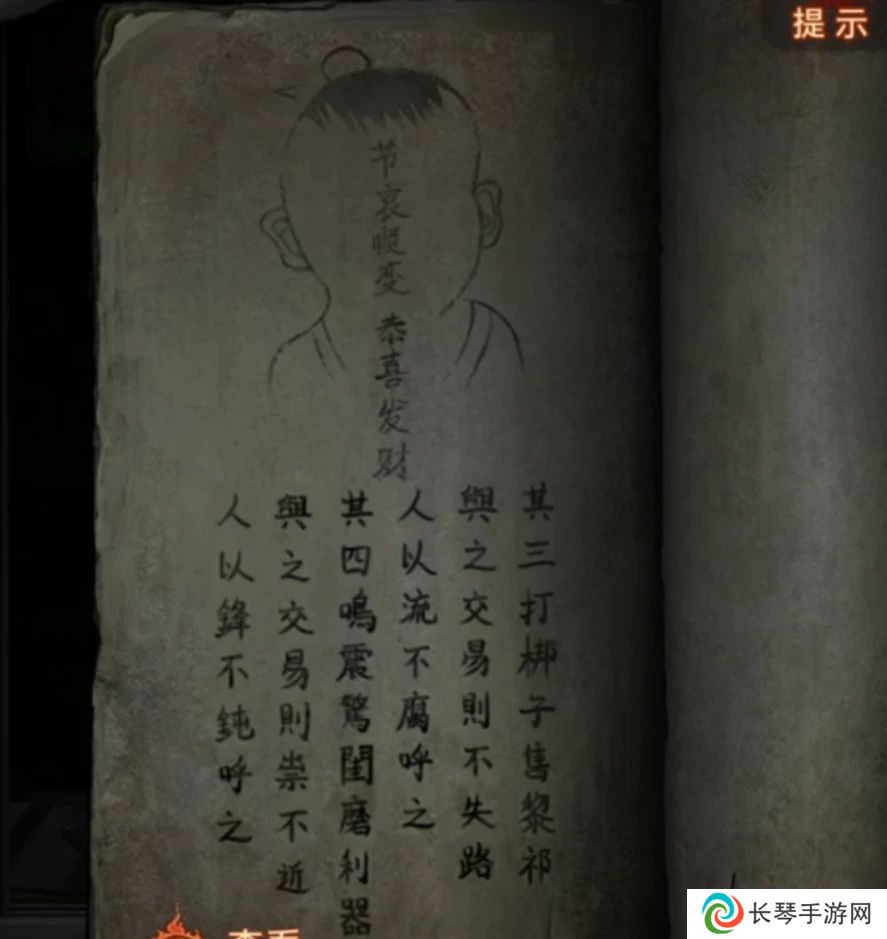 提示
节哀顺变
恭喜发财
其三打梆子售黎祁
與之交易則不失路
人以流不腐呼之
其四鳴震驚閨磨利器
與之交易則祟不近
人以鋒不鈍呼之
查看
长琴手游网